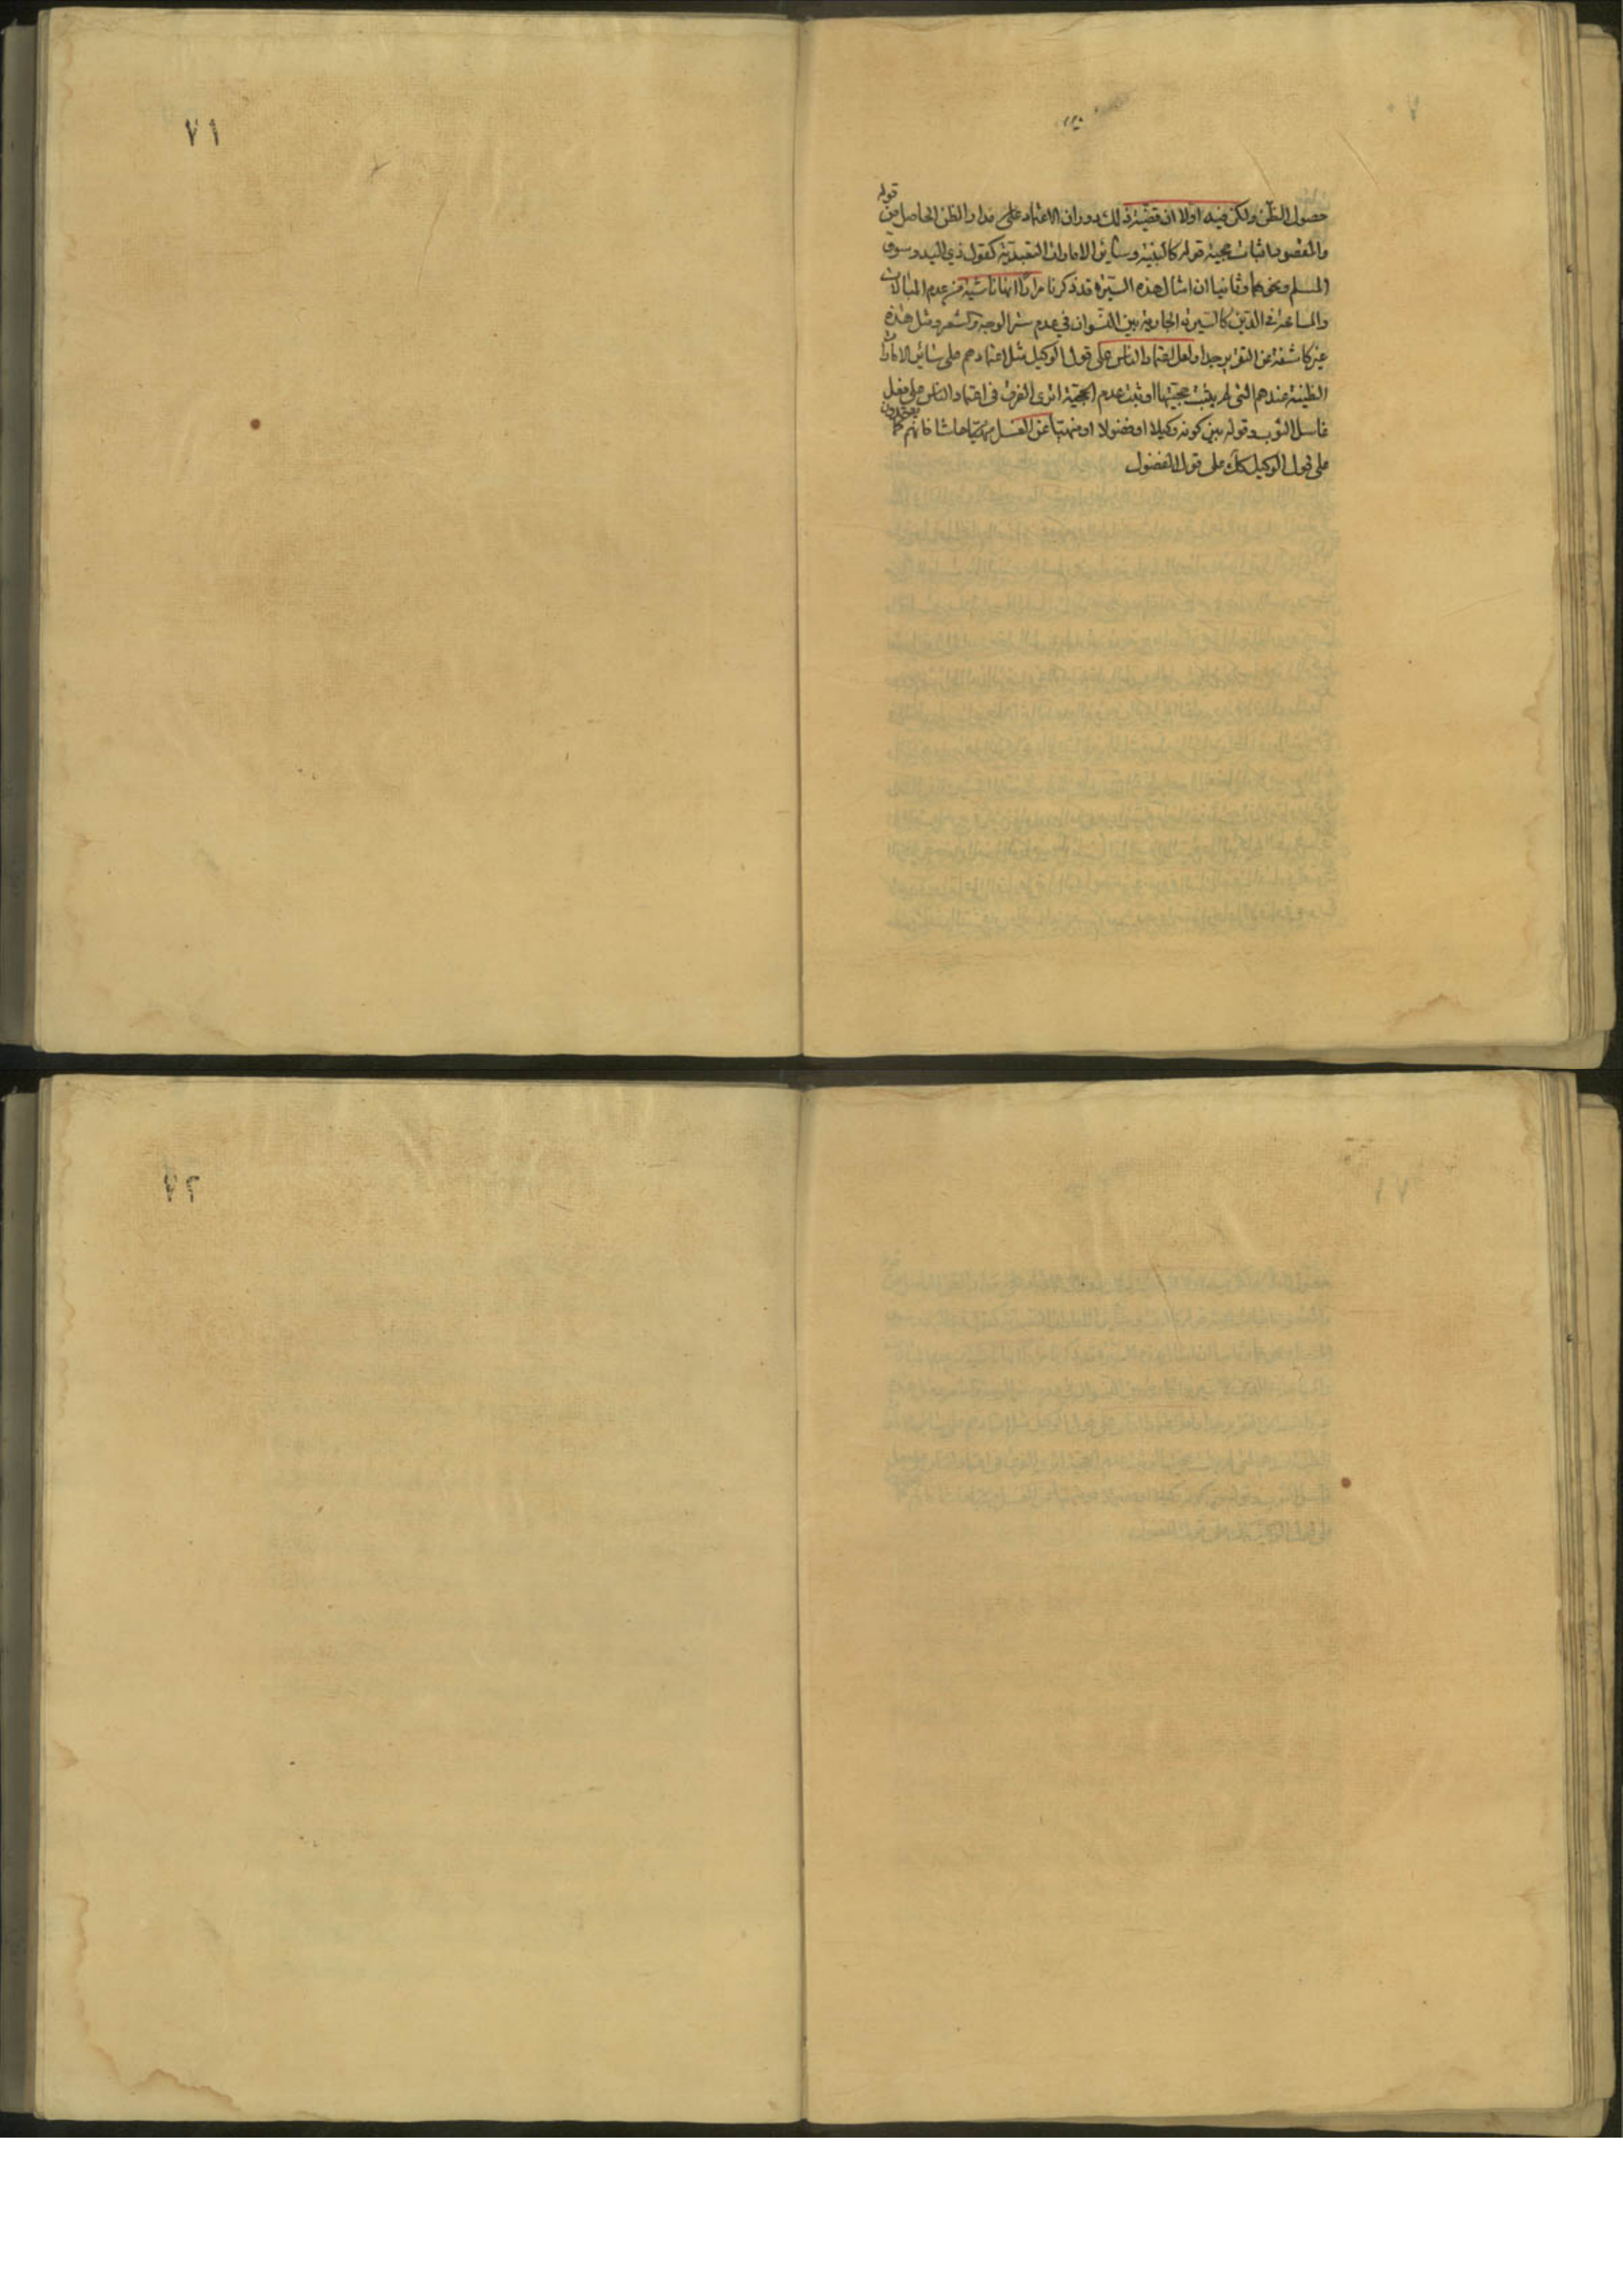 ٧١
حصول الظن ولكن فيه اولا ان قضية ذلك دوران الاعتماد على مدار الظن الحاصل من قوله
والمقصود اثبات حجية قوله كالبينة وسائر الامارات التعبدية كقول ذي اليد وسوق
المسلم ونحوهما وثانيا ان امثال هذه السيرة قد ذكرنا مرارا انها ناشية من عدم المبالات
والمسامحة في الدين كالسيرة الجارية بين النسوان في عدم ستر الوجه والشعر ومثل هذه
غير كاشفة عن التقرير جدا ولعل اعتماد الناس على قول الوكيل مثل اعتمادهم على سائر الامارات
الظنية عندهم التي لم يثبت حجيتها او ثبت عدم الحجية اترى الفرق في اعتماد الناس على فعل
غاسل الثوب وقوله بين كونه وكيلا او فضولا او منهيا عن الغسل حاشا فانهم كما يعتمدون
على قول الوكيل كك على قول الفضول
٧٢
٧١